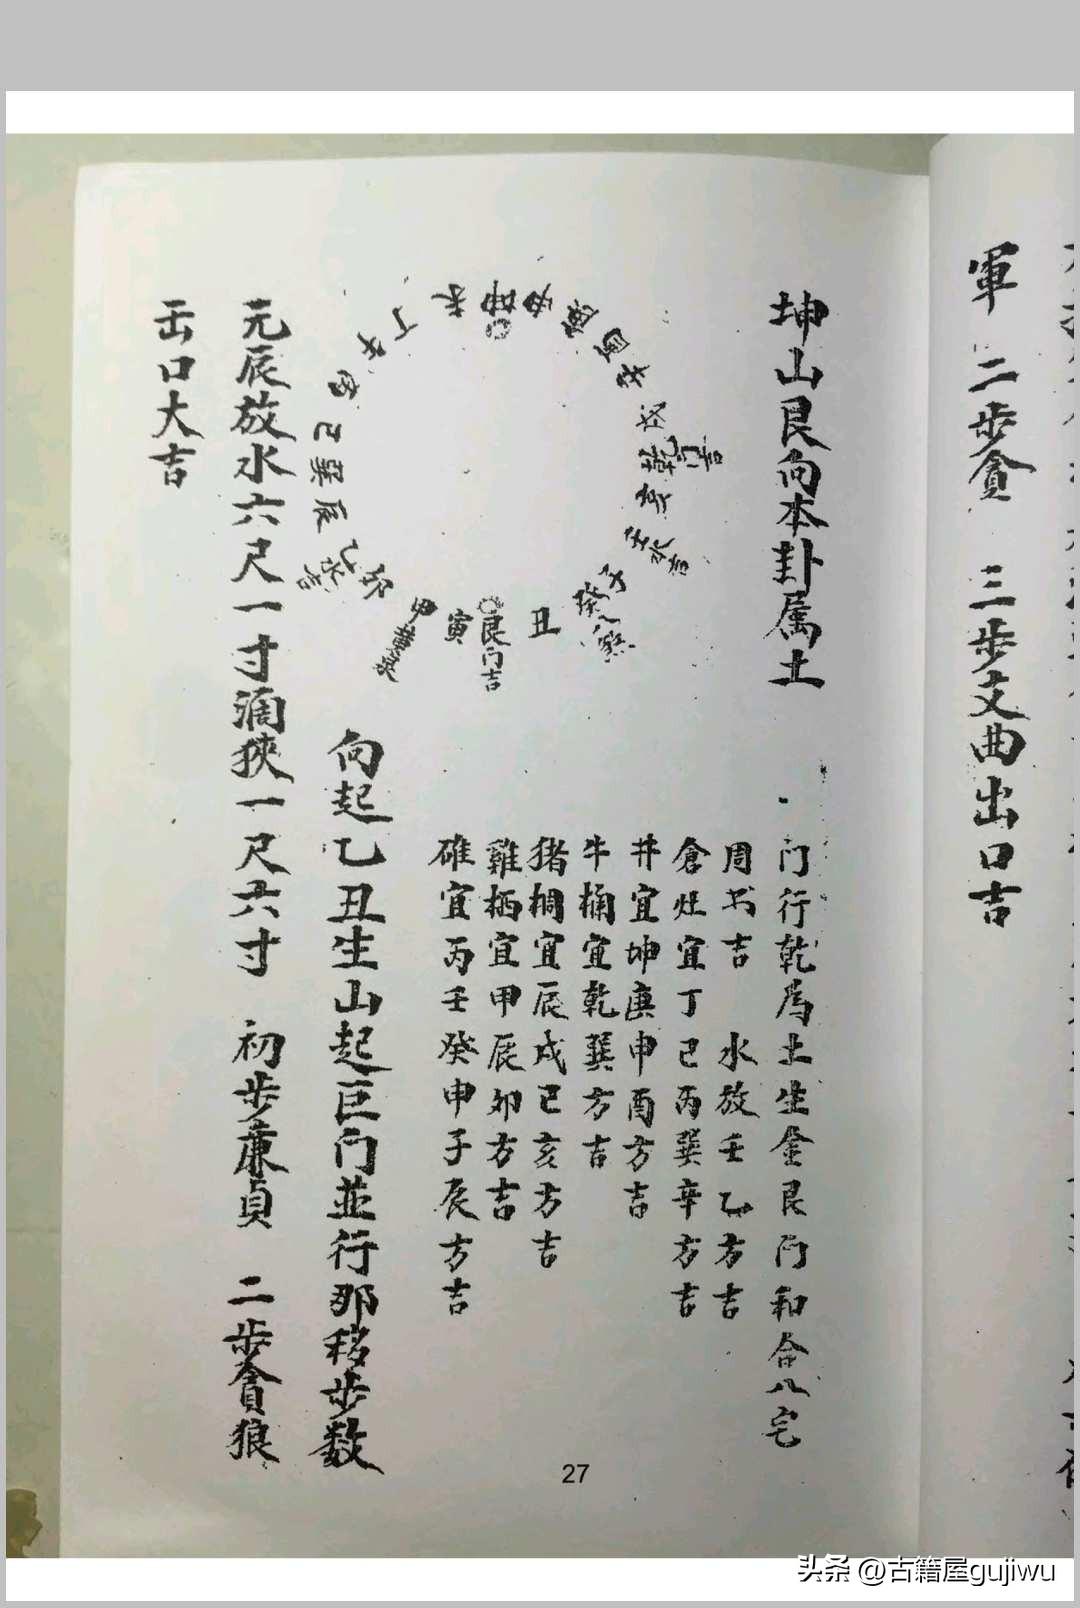 軍 二步貪 三步文曲出口吉
坤山艮向本卦属土
门行乾為土生金艮门和合八宅
周书吉 水放壬乙方吉
倉灶宜丁己丙巽辛方吉
井宜坤庚申酉方吉
牛桶宜乾巽方吉
猪椆宜辰戌己亥方吉
雞栖宜甲辰卯方吉
碓宜丙壬癸申子辰方吉
坤
申
庚
酉
辛
戌
乾
亥
壬水吉
子
癸八煞
丑
艮门吉
寅
甲黄泉
卯
乙水吉
辰
巽
巳
丙
午
丁
未
向起乙丑生山起巨门並行那移步数
元辰放水六尺一寸濶狹一尺六寸 初步廉貞 二步貪狼
出口大吉
27
头条 @古籍屋gujiwu